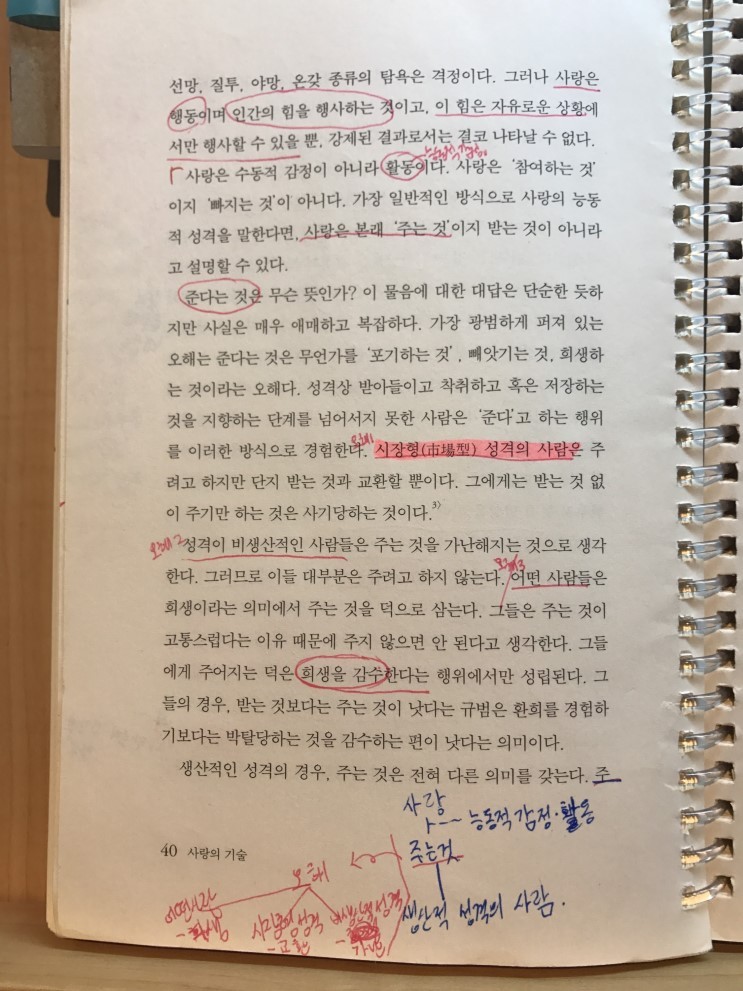 선망, 질투, 야망, 온갖 종류의 탐욕은 격정이다. 그러나 사랑은
행동이며 인간의 힘을 행사하는 것이고, 이 힘은 자유로운 상황에
서만 행사할 수 있을 뿐, 강제된 결과로서는 결코 나타날 수 없다.
능동적 감정.
사랑은 수동적 감정이 아니라 활동이다. 사랑은 ‘참여하는 것’
이지 ‘빠지는 것’이 아니다. 가장 일반적인 방식으로 사랑의 능동
적 성격을 말한다면, 사랑은 본래 ‘주는 것’이지 받는 것이 아니라
고 설명할 수 있다.
준다는 것은 무슨 뜻인가? 이 물음에 대한 대답은 단순한 듯하
지만 사실은 매우 애매하고 복잡하다. 가장 광범하게 퍼져 있는
오해는 준다는 것은 무언가를 ‘포기하는 것’, 빼앗기는 것, 희생하
는 것이라는 오해다. 성격상 받아들이고 착취하고 혹은 저장하는
것을 지향하는 단계를 넘어서지 못한 사람은 ‘준다’고 하는 행위
오해1
를 이러한 방식으로 경험한다. 시장형(市場型) 성격의 사람은 주
려고 하지만 단지 받는 것과 교환할 뿐이다. 그에게는 받는 것 없
이 주기만 하는 것은 사기당하는 것이다.3)
오해2 성격이 비생산적인 사람들은 주는 것을 가난해지는 것으로 생각
오해3
한다. 그러므로 이들 대부분은 주려고 하지 않는다. 어떤 사람들은
희생이라는 의미에서 주는 것을 덕으로 삼는다. 그들은 주는 것이
고통스럽다는 이유 때문에 주지 않으면 안 된다고 생각한다. 그들
에게 주어지는 덕은 희생을 감수한다는 행위에서만 성립된다. 그
들의 경우, 받는 것보다는 주는 것이 낫다는 규범은 환희를 경험하
기보다는 박탈당하는 것을 감수하는 편이 낫다는 의미이다.
생산적인 성격의 경우, 주는 것은 전혀 다른 의미를 갖는다. 주
사랑
능동적 감정·활동
주는것
생산적 성격의 사람.
40 사랑의 기술
오해
어떤사람
-희생
시장형 성격
-교환
비생산적 성격
가난